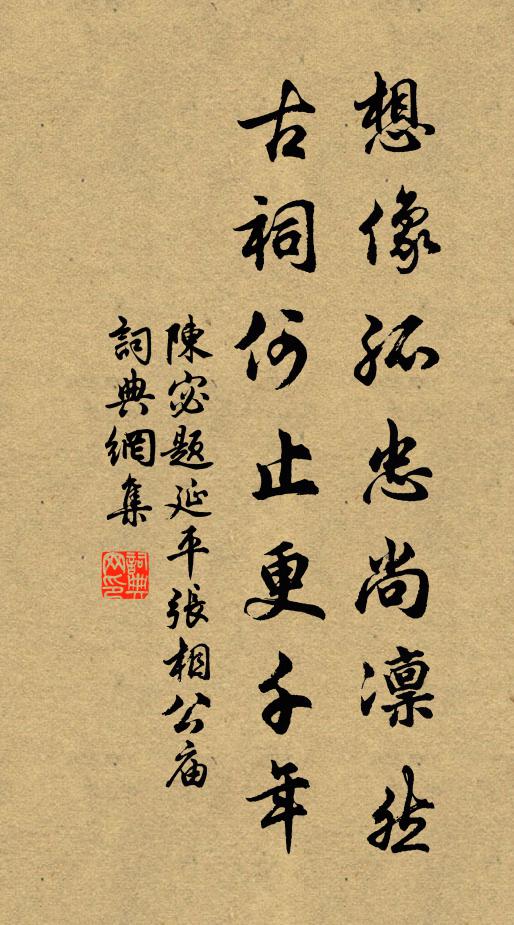 想像孤忠尚凜然
古祠何止更千年
陳宓題延平張相公庙
詞典網集
詞典网印